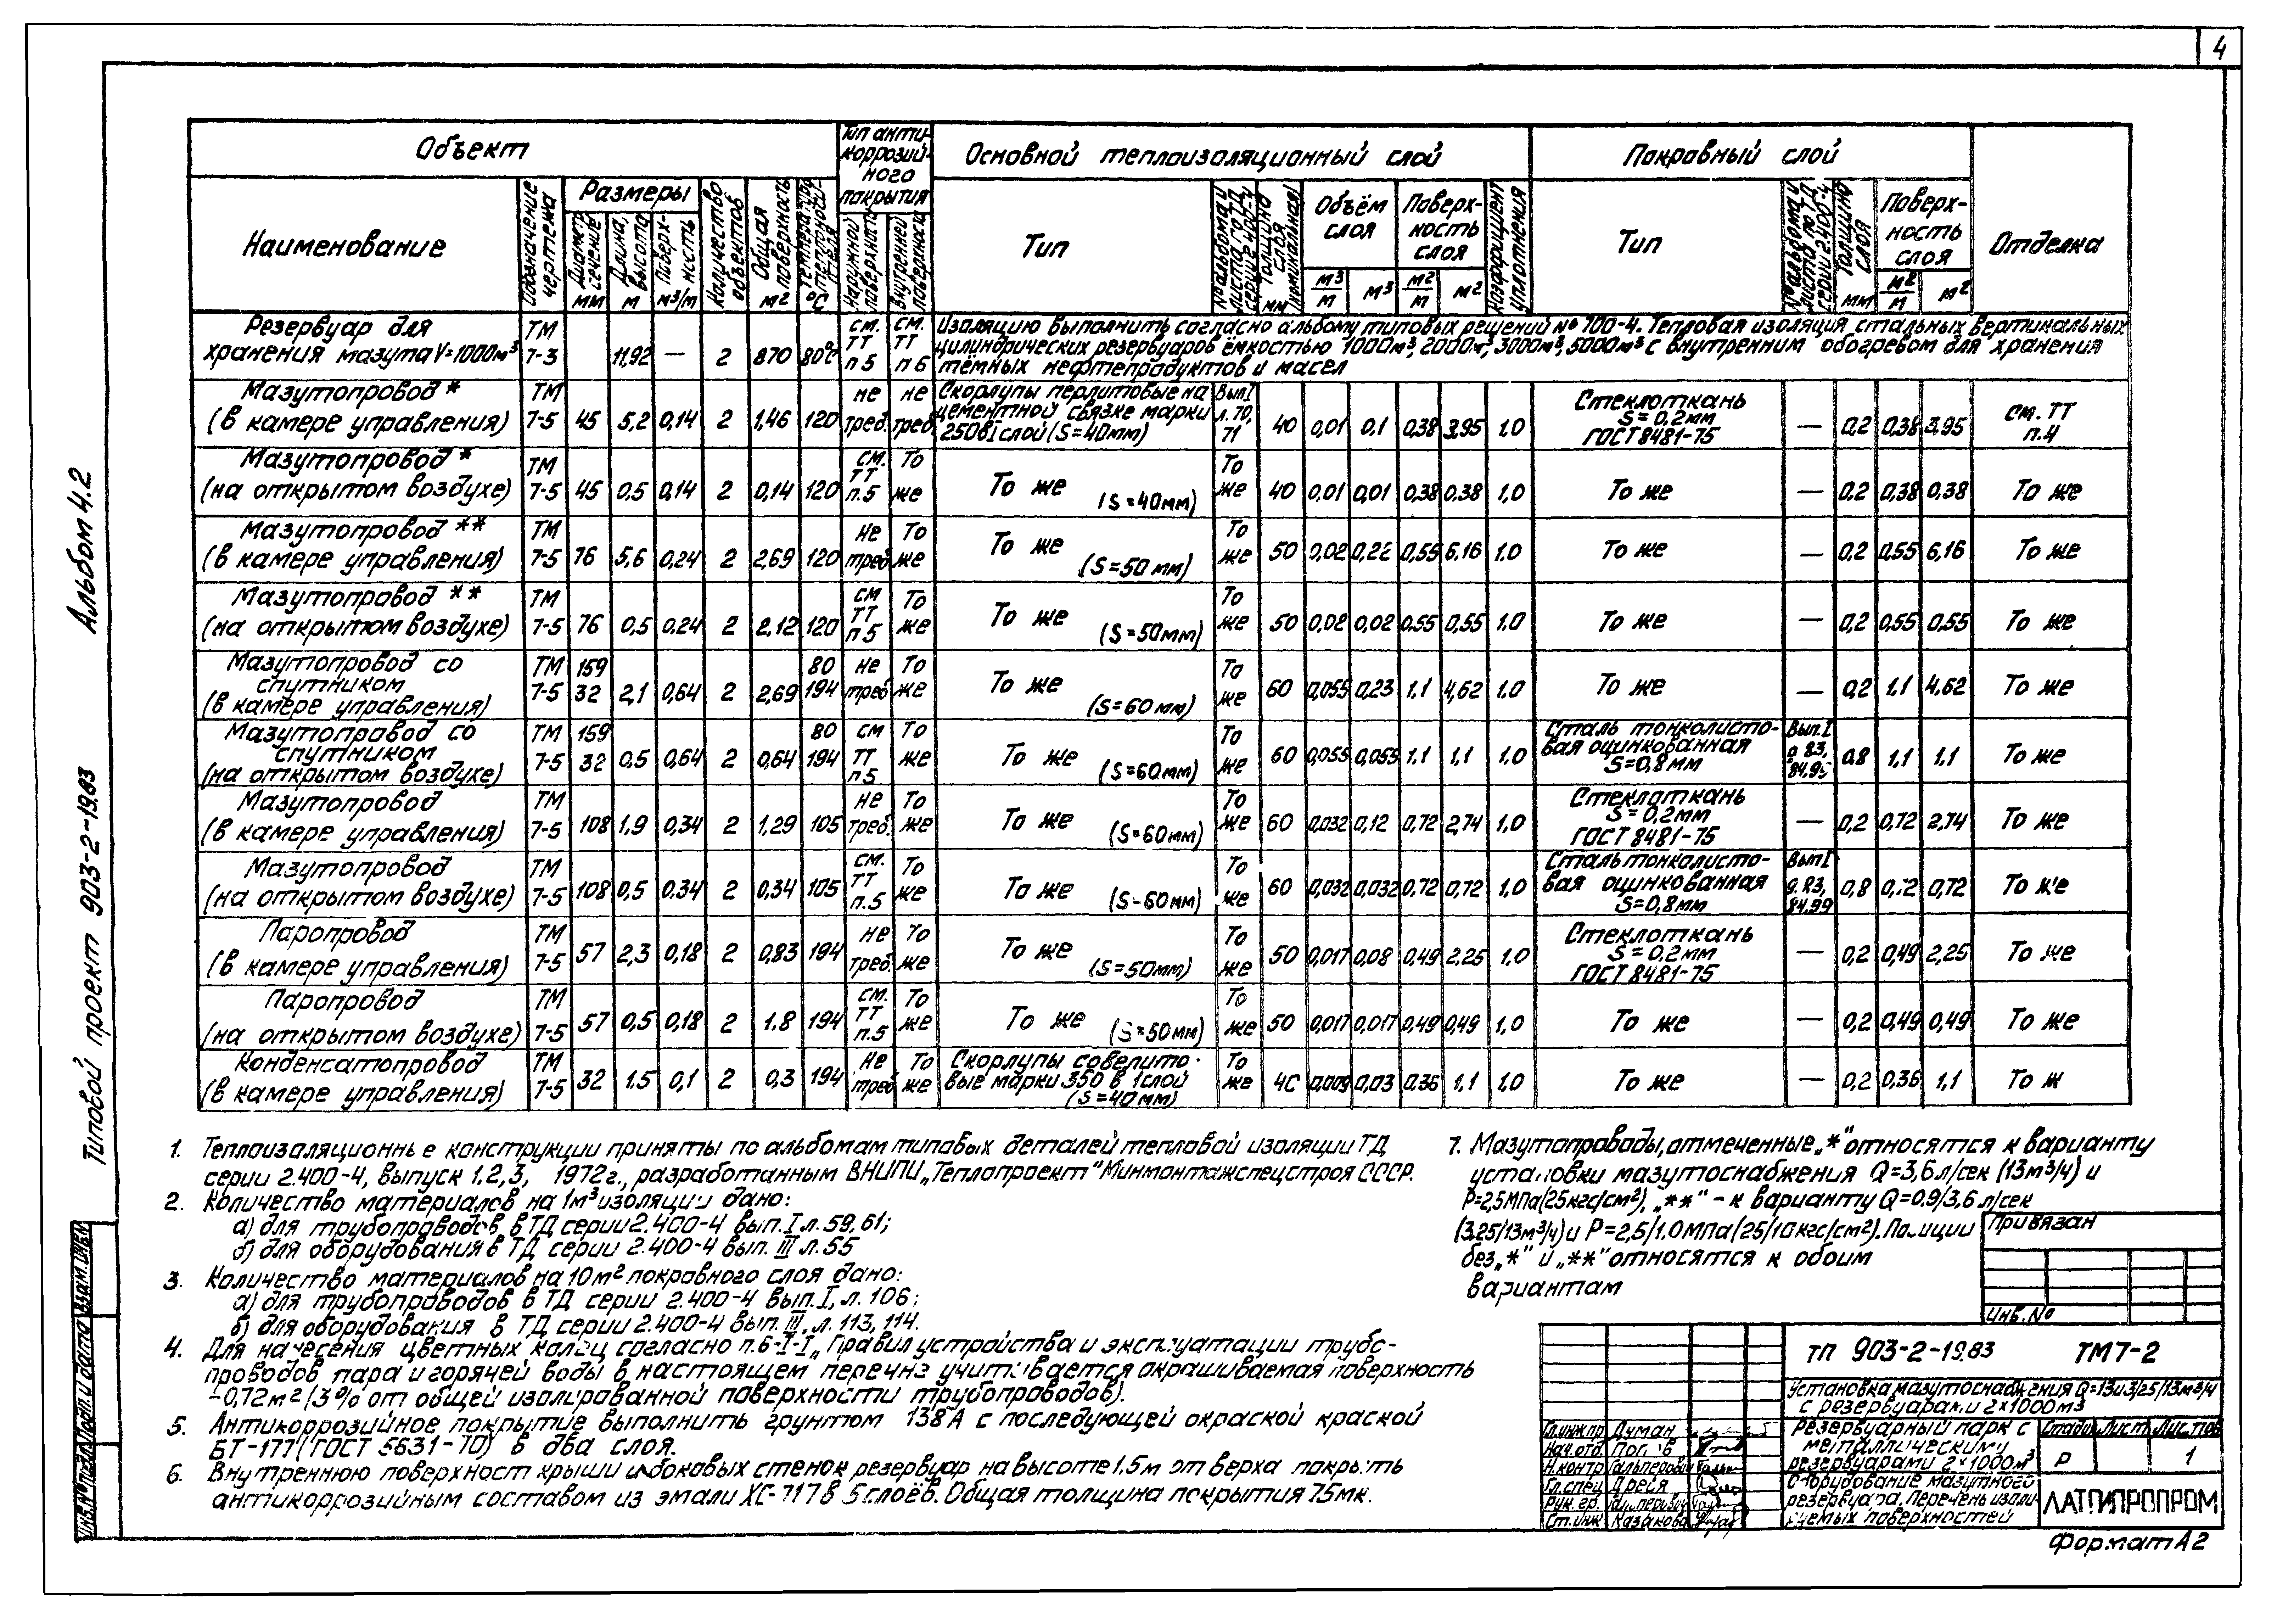 4
Альбом 4.2
Типовой проект 903-2-19.83
Объект
Тип антикоррозийного покрытия
Основной теплоизоляционный слой
Покровный слой
Отделка
Наименование
Обозначение чертежа
Размеры
Диаметр, сечение мм
Длина, высота м
Поверхность м³/м
Количество объектов
Общая поверхность м²
Температура теплоносителя °С
Наружной поверхности
Внутренней поверхности
Тип
№ альбома и листа по ТД серии 2.400-4
Толщина слоя номинальная мм
Объём слоя
м³/м м³
Поверхность слоя
м²/м м²
Коэффициент уплотнения
Тип
№ альбома и листа по ТД серии 2.400-4
Толщина слоя мм
Поверхность слоя
м²/м м²
Резервуар для хранения мазута V=1000м³ ТМ 7-3 11,92 — 2 870 80°С см. ТТ п5 см. ТТ п6
Изоляцию выполнить согласно альбому типовых решений № 700-4. Тепловая изоляция стальных вертикальных
цилиндрических резервуаров ёмкостью 1000м³, 2000м³, 3000м³, 5000м³ с внутренним обогревом для хранения
тёмных нефтепродуктов и масел
Мазутопровод * (в камере управления) ТМ 7-5 45 5,2 0,14 2 1,46 120 не треб. не треб. Скорлупы перлитовые на цементной связке марки 250 в 1 слой (S=40мм) Вып I л.70, 71 40 0,01 0,1 0,38 3,95 1.0 Стеклоткань S=0,2мм ГОСТ 8481-75 — 0,2 0,38 3,95 см. ТТ п.4
Мазутопровод * (на открытом воздухе) ТМ 7-5 45 0,5 0,14 2 0,14 120 см. ТТ п.5 То же То же (S=40мм) То же 40 0,01 0,01 0,38 0,38 1,0 То же — 0,2 0,38 0,38 То же
Мазутопровод ** (в камере управления) ТМ 7-5 76 5,6 0,24 2 2,69 120 Не треб То же То же (S=50мм) То же 50 0,02 0,22 0,55 6,16 1.0 То же — 0,2 0,55 6,16 То же
Мазутопровод ** (на открытом воздухе) ТМ 7-5 76 0,5 0,24 2 2,12 120 см ТТ п.5 То же То же (S=50мм) То же 50 0,02 0,02 0,55 0,55 1.0 То же — 0,2 0,55 0,55 То же
Мазутопровод со спутником (в камере управления) ТМ 7-5 159 32 2,1 0,64 2 2,69 80 194 Не треб То же То же (S=60мм) То же 60 0,055 0,23 1.1 4,62 1,0 То же — 0,2 1.1 4,62 То же
Мазутопровод со спутником (на открытом воздухе) ТМ 7-5 159 32 0,5 0,64 2 0,64 80 194 см ТТ п.5 То же То же (S=60мм) То же 60 0,055 0,055 1.1 1,1 1,0 Сталь тонколистовая оцинкованная S=0,8мм Вып. I 83, 84,95 0,8 1,1 1,1 То же
Мазутопровод (в камере управления) ТМ 7-5 108 1,9 0,34 2 1,29 105 Не треб. То же То же (S=60мм) То же 60 0,032 0,12 0,72 2,74 1,0 Стеклоткань S=0,2мм ГОСТ 8481-75 — 0,2 0,72 2,74 То же
Мазутопровод (на открытом воздухе) ТМ 7-5 108 0,5 0,34 2 0,34 105 см. ТТ п.5 То же То же (S-60мм) То же 60 0,032 0,032 0,72 0,72 1,0 Сталь тонколистовая оцинкованная S=0,8мм Вып I 83, 84,99 0,8 0,72 0,72 То же
Паропровод (в камере управления) ТМ 7-5 57 2,3 0,18 2 0,83 194 не треб. То же То же (S=50мм) То же 50 0,017 0,08 0,49 2,25 1,0 Стеклоткань S=0.2мм ГОСТ 8481-75 — 0,2 0,49 2,25 То же
Паропровод (на открытом воздухе) ТМ 7-5 57 0,5 0,18 2 1.8 194 см. ТТ п.5 То же То же (S=50мм) То же 50 0,017 0,017 0,49 0,49 1,0 То же — 0,2 0,49 0,49 То же
Конденсатопровод (в камере управления) ТМ 7-5 32 1.5 0,1 2 0,3 194 Не треб То же Скорлупы совелитовые марки 350 в 1 слой (S=40мм) То же 40 0,009 0,03 0,36 1,1 1,0 То же — 0,2 0,36 1,1 То ж
1. Теплоизоляционные конструкции приняты по альбомам типовых деталей тепловой изоляции ТД
серии 2.400-4, выпуск 1,2,3, 1972г., разработанным ВНИПИ „Теплопроект" Минмонтажспецстроя СССР.
2. Количество материалов на 1м³ изоляции дано:
а) для трубопроводов в ТД серии 2.400-4 вып. I л. 59, 61;
б) для оборудования в ТД серии 2.400-4 вып. III л. 55
3. Количество материалов на 10м² покровного слоя дано:
а) для трубопроводов в ТД серии 2.400-4 вып. I, л. 106;
б) для оборудования в ТД серии 2.400-4 вып. III, л. 113, 114.
4. Для нанесения цветных колец согласно п.6-I-I „Правил устройства и эксплуатации трубо-
проводов пара и горячей воды в настоящем перечне учитывается окрашиваемая поверхность
-0,72м² (3% от общей изолированной поверхности трубопроводов).
5. Антикоррозийное покрытие выполнить грунтом 138А с последующей окраской краской
БТ-177 (ГОСТ 5631-70) в два слоя.
6. Внутреннюю поверхност крыши и боковых стенок резервуар на высоте 1.5м от верха покрыть
антикоррозийным составом из эмали ХС-717 в 5 слоёв. Общая толщина покрытия 75мк.
7. Мазутопроводы, отмеченные „*" относятся к варианту
установки мазутоснабжения Q=3,6л/сек (13м³/ч) и
Р=2,5МПа (25кгс/см²), „**" - к варианту Q=0.9/3,6 л/сек
(3.25/13м³/ч) и Р=2,5/1.0МПа (25/10кгс/см²). Позиции
без „*" и „**" относятся к обоим
вариантам
Привязан
Инв. №
ТП 903-2-19.83 ТМ7-2
Установка мазутоснабжения Q=13и3/25/13м³/ч
с резервуарами 2×1000м3
Резервуарный парк с
металлическими
резервуарами 2×1000м³
Стадия Лист Листов
Р 1
Оборудование мазутного
резервуара. Перечень изоли-
руемых поверхностей
ЛАТГИПРОПРОМ
Гл.инж.пр Думан
Нач.отд.
Н.контр Гальперович
Гл.спец Дрейя
Рук. гр.
Ст.инж Казакова
Взам.инв.№
Подп. и дата
Инв.№ подл.
Формат А2